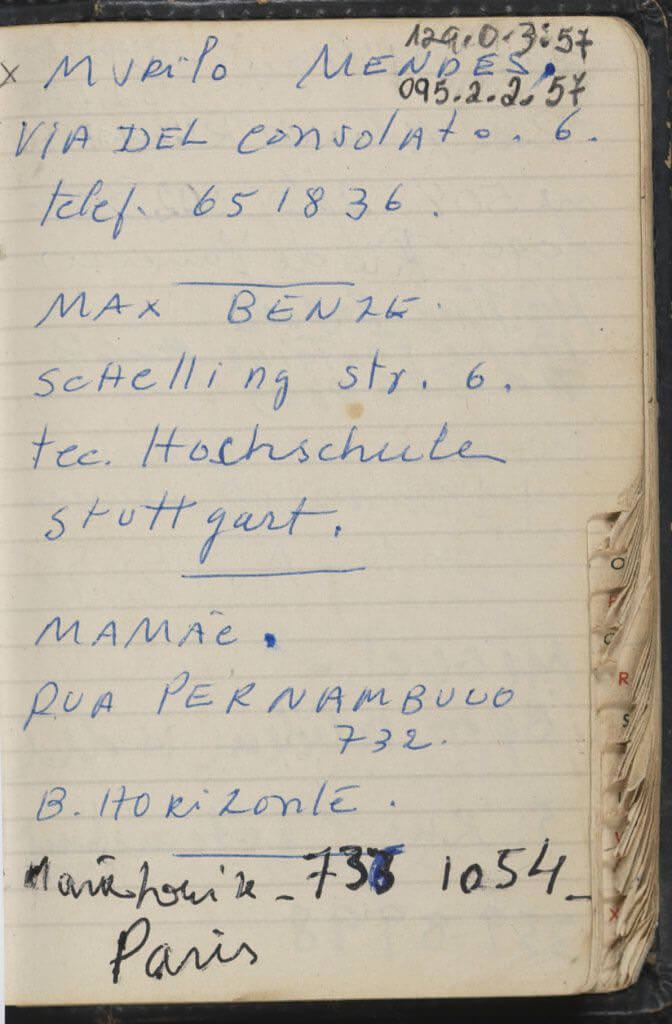 129.0.3.57
x MURiLO MENDES.
095.2.2.57
VIA DEL consolato. 6.
telef. 651836.
MAX BENZE.
scHelling str. 6.
tec. Hochschule
stuttgart.
MAMÃe.
RUA PERNAMBUCO
732.
B. HORizontE.
_ 1054_
Paris
O
P
Q
R
S
V
X